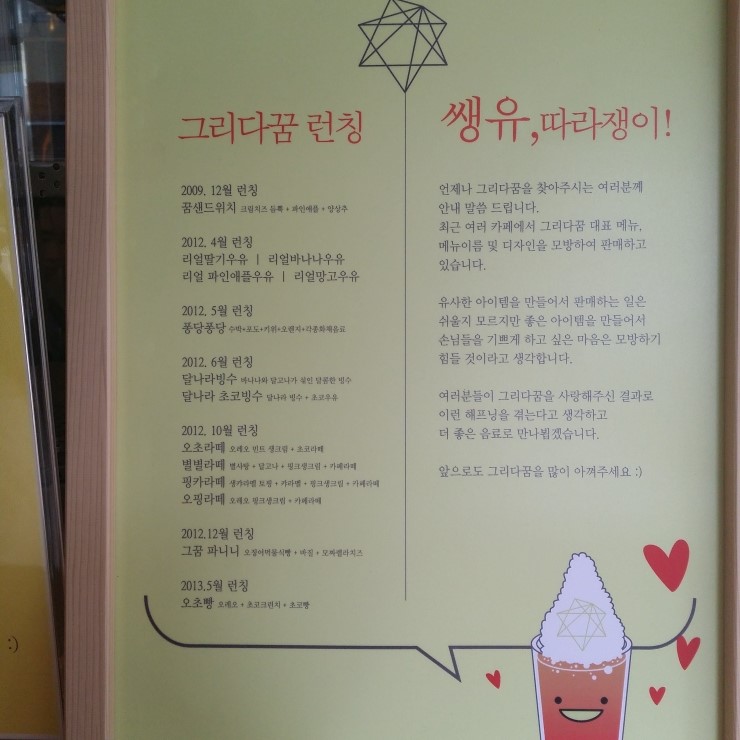 그리다꿈 런칭
2009. 12월 런칭
꿈샌드위치 크림치즈 듬뿍 + 파인애플 + 양상추
2012. 4월 런칭
리얼딸기우유 | 리얼바나나우유
리얼 파인애플우유 | 리얼망고우유
2012. 5월 런칭
퐁당퐁당 수박+포도+키위+오렌지+각종화채음료
2012. 6월 런칭
달나라빙수 바나나와 달고나가 섞인 달콤한 빙수
달나라 초코빙수 달나라 빙수 + 초코우유
2012. 10월 런칭
오초라떼 오레오 민트 생크림 + 초코라떼
별별라떼 별사탕 + 달고나 + 핑크생크림 + 카페라떼
핑카라떼 생카라멜 토핑 + 카라멜 + 핑크생크림 + 카페라떼
오핑라떼 오레오 핑크생크림 + 카페라떼
2012.12월 런칭
그꿈 파니니 오징어먹물식빵 + 바질 + 모짜렐라치즈
2013.5월 런칭
오초빵 오레오 + 초코크런치 + 초코빵
쌩유,따라쟁이!
언제나 그리다꿈을 찾아주시는 여러분께
안내 말씀 드립니다.
최근 여러 카페에서 그리다꿈 대표 메뉴,
메뉴이름 및 디자인을 모방하여 판매하고
있습니다.
유사한 아이템을 만들어서 판매하는 일은
쉬울지 모르지만 좋은 아이템을 만들어서
손님들을 기쁘게 하고 싶은 마음은 모방하기
힘들 것이라고 생각합니다.
여러분들이 그리다꿈을 사랑해주신 결과로
이런 해프닝을 겪는다고 생각하고
더 좋은 음료로 만나뵙겠습니다.
앞으로도 그리다꿈을 많이 아껴주세요 :)
:)